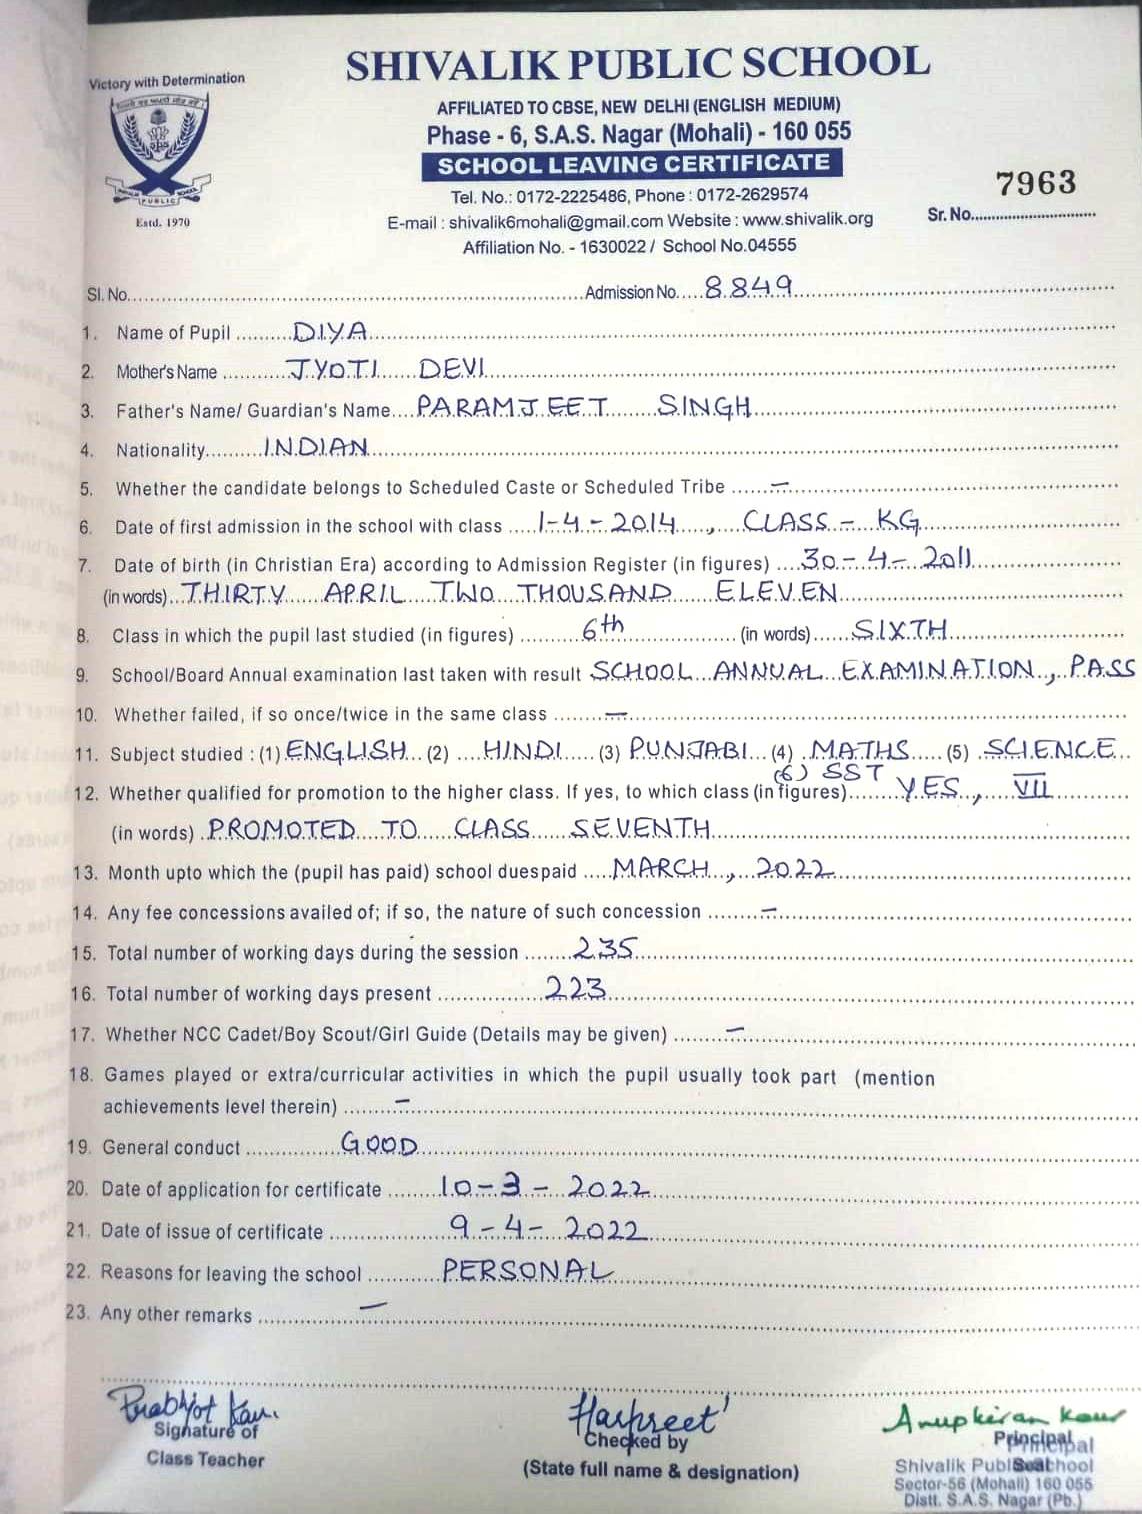 Victory with Determination
SHIVALIK PUBLIC SCHOOL
AFFILIATED TO CBSE, NEW DELHI (ENGLISH MEDIUM)
Phase - 6, S.A.S. Nagar (Mohali) - 160 055
SCHOOL LEAVING CERTIFICATE
Tel. No.: 0172-2225486, Phone : 0172-2629574
E-mail : shivalik6mohali@gmail.com Website : www.shivalik.org
Affiliation No. - 1630022 / School No.04555
PUBLIC
Estd. 1970
7963
Sr. No.
Sl. No. Admission No. 8849
1. Name of Pupil DIYA
2. Mother's Name JYOTI DEVI
3. Father's Name/ Guardian's Name PARAMJEET SINGH
4. Nationality INDIAN
5. Whether the candidate belongs to Scheduled Caste or Scheduled Tribe —
6. Date of first admission in the school with class 1-4-2014, CLASS - KG
7. Date of birth (in Christian Era) according to Admission Register (in figures) 30-4-2011
(in words) THIRTY APRIL TWO THOUSAND ELEVEN
8. Class in which the pupil last studied (in figures) 6th (in words) SIXTH
9. School/Board Annual examination last taken with result SCHOOL ANNUAL EXAMINATION, PASS
10. Whether failed, if so once/twice in the same class —
11. Subject studied : (1) ENGLISH (2) HINDI (3) PUNJABI (4) MATHS (5) SCIENCE
(6) SST
12. Whether qualified for promotion to the higher class. If yes, to which class (in figures) YES, VII
(in words) PROMOTED TO CLASS SEVENTH
13. Month upto which the (pupil has paid) school duespaid MARCH, 2022
14. Any fee concessions availed of; if so, the nature of such concession —
15. Total number of working days during the session 235
16. Total number of working days present 223
17. Whether NCC Cadet/Boy Scout/Girl Guide (Details may be given) —
18. Games played or extra/curricular activities in which the pupil usually took part (mention
achievements level therein) —
19. General conduct GOOD
20. Date of application for certificate 10-3-2022
21. Date of issue of certificate 9-4-2022
22. Reasons for leaving the school PERSONAL
23. Any other remarks —
Prabhjot Kaur. Harpreet Anupkiran Kaur
Signature of Checked by Principal
Class Teacher (State full name & designation) Seal
Principal
Shivalik Public School
Sector-56 (Mohali) 160 055
Distt. S.A.S. Nagar (Pb.)